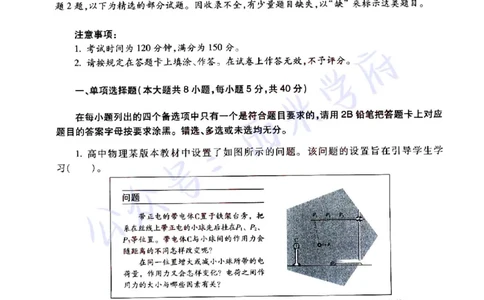 题2题,以下为精选的部分试题。因收录不全,有少量题目缺失,以“缺”来标示这类题目。
注意事项:
1. 考试时间为120分钟,满分为150分。
2. 请按规定在答题卡上填涂、作答。在试卷上作答无效,不予评分。
一、单项选择题(本大题共8小题,每小题5分,共40分)
在每小题列出的四个备选项中只有一个是符合题目要求的,请用2B铅笔把答题卡上对应
题目的答案字母按要求涂黑。错选、多选或未选均无分。
1. 高中物理某版本教材中设置了如图所示的问题。该问题的设置旨在引导学生学
习( )。
问题
带正电的带电体C置于铁架台旁,把
系在丝线上带正电的小球先后挂在P₁、P₂、
P₃等位置。带电体C与小球间的作用力会
随距离的不同怎样改变呢?
在同一位置增大或减小小球所带的电
荷量,作用力又会怎样变化?电荷之间作
用力的大小与哪些因素有关?
P₁ P₂ P₃